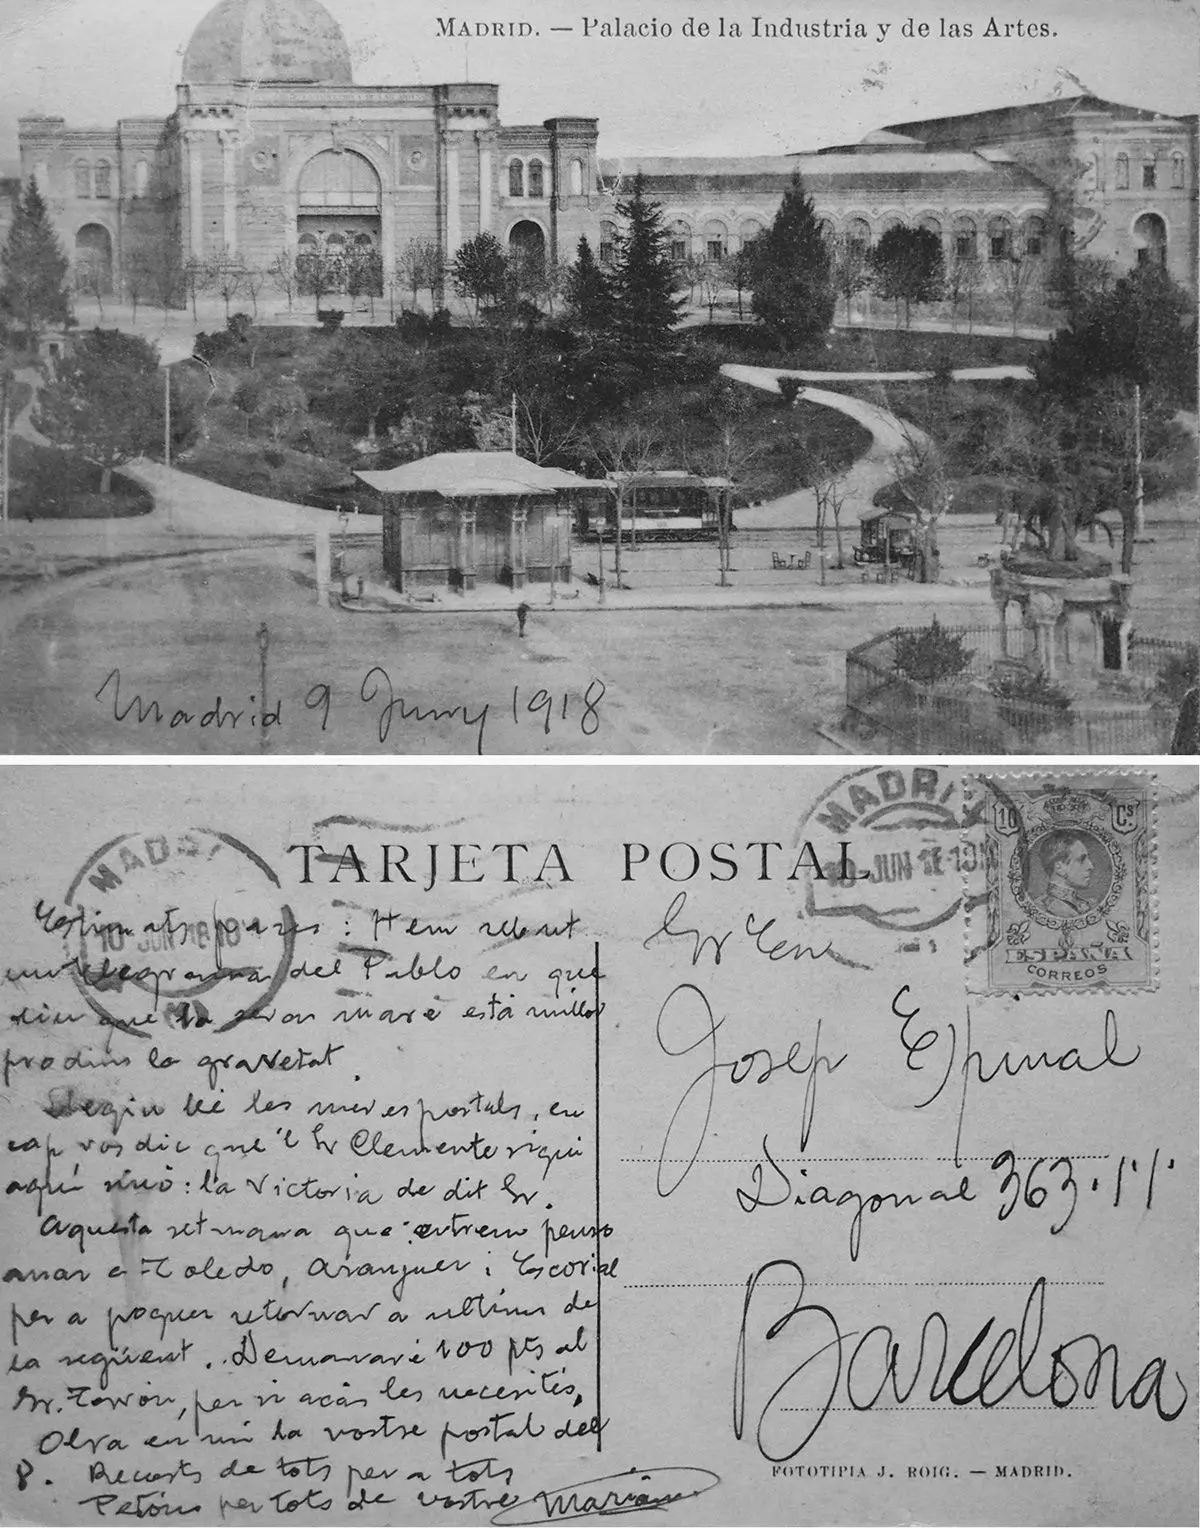 MADRID. — Palacio de la Industria y de las Artes.
Madrid 9 Juny 1918
TARJETA POSTAL
MADRID
10 JUN 18
MADRID
10 JUN 18
10 Cs
ESPAÑA
CORREOS
Estimats pares: Hem rebut
un telegrama del Pablo en que
diu que la seva mare está millor
la gravetat.
Llegiu bé les meves postals, en
cap vos dic que 'l Sr Clemente sigui
aquí sinó: la Victoria de dit Sr.
Aquesta setmana que entrem penso
anar a Toledo, Aranjuez i Escorial
per a poguer retornar a ultims de
la següent. Demanaré 100 pts al
Sr. per si acás les necesités.
Obra en mi la vostre postal del
8. Recorts de tots per a tots
Petóns per tots de vostre Marián
Sr En
Josep Espinal
Diagonal 363 · 1' 1'
Barcelona
FOTOTIPIA J. ROIG. — MADRID.